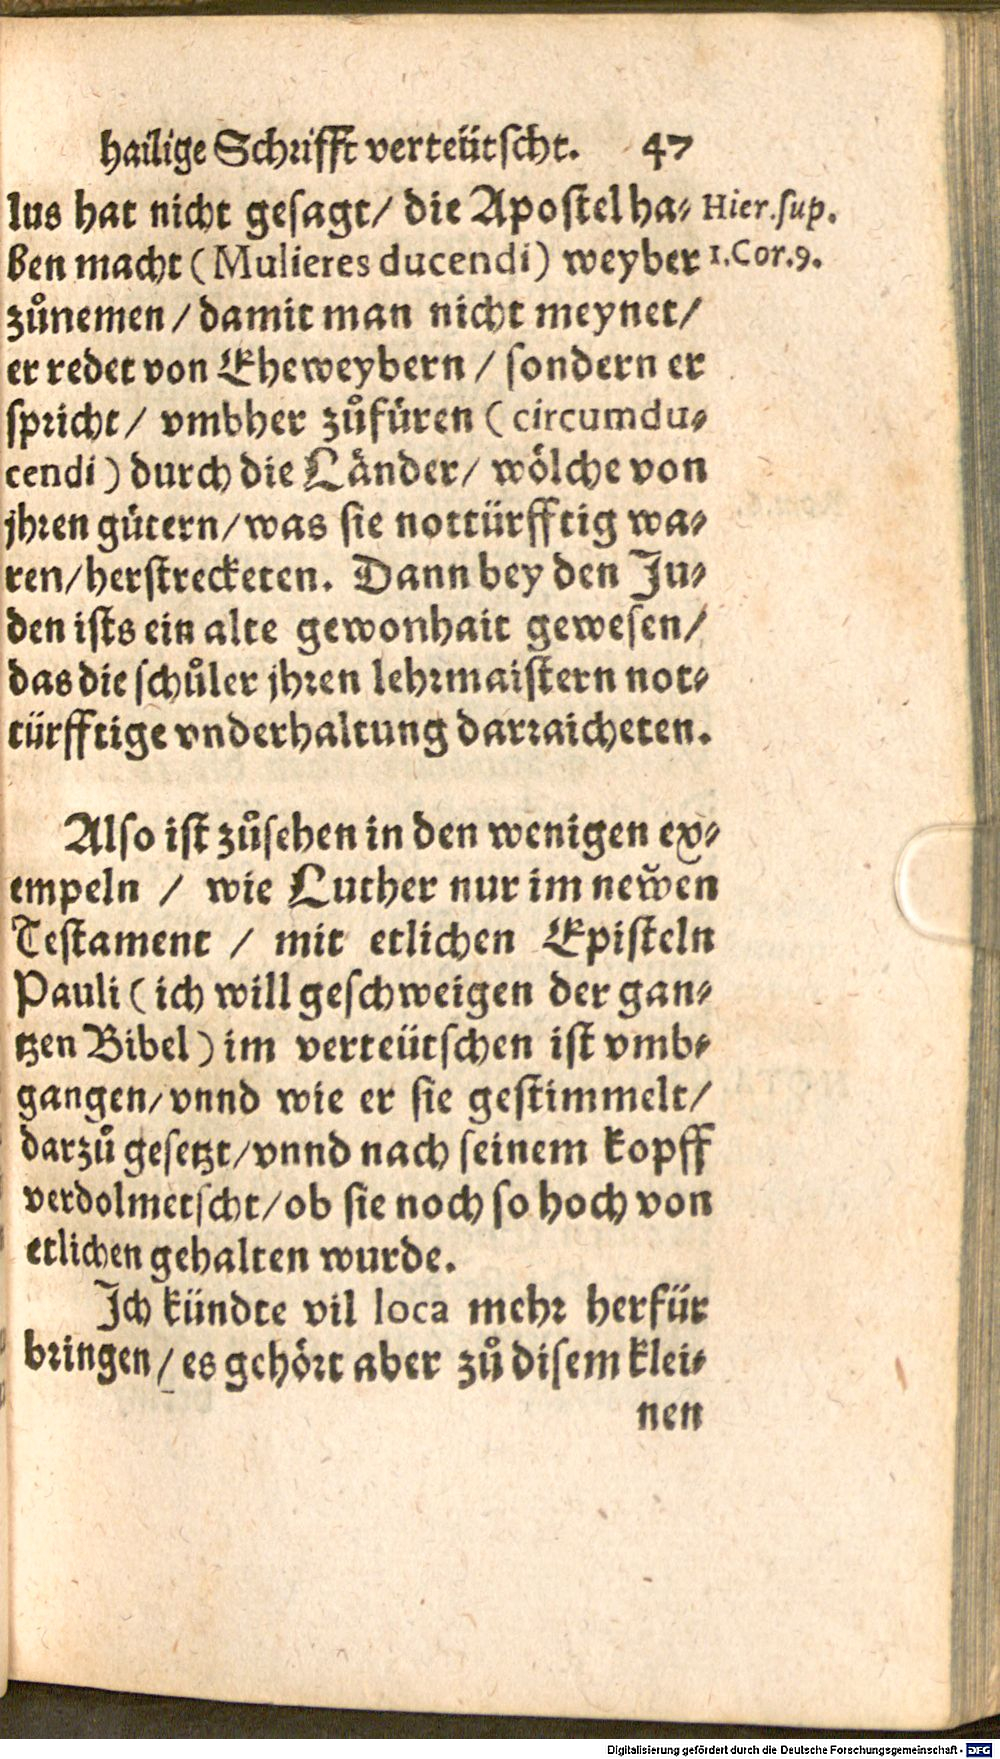 hailige Schrifft verteütscht. 47
lus hat nicht gesagt/ die Apostel ha⸗ Hier. sup.
ben macht (Mulieres ducendi) weyber 1. Cor. 9.
zůnemen / damit man nicht meynet/
er redet von Eheweybern / sondern er
spricht / vmbher zůfüren (circumdu⸗
cendi) durch die Länder/ wölche von
jhren gütern/was sie nottürfftig wa⸗
ren/herstrecketen. Dann bey den Ju⸗
den ists ein alte gewonhait gewesen/
das die schůler jhren lehrmaistern not⸗
türfftige vnderhaltung darraicheten.
Also ist zůsehen in den wenigen ex⸗
empeln / wie Luther nur im newen
Testament / mit etlichen Episteln
Pauli (ich will geschweigen der gan⸗
tzen Bibel) im verteütschen ist vmb⸗
gangen/vnnd wie er sie gestimmelt/
darzů gesetzt/vnnd nach seinem kopff
verdolmetscht/ob sie noch so hoch von
etlichen gehalten wurde.
Ich kündte vil loca mehr herfür
bringen/es gehört aber zů disem klei⸗
nen
Digitalisierung gefördert durch die Deutsche Forschungsgemeinschaft - DFG